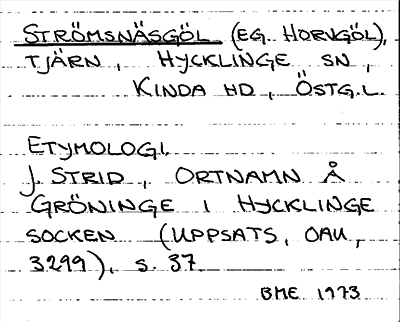 STRÖMSNÄSGÖL (EG. HORVGÖL),
TJÄRN, HYCKLINGE SN,
KINDA HD, ÖSTG.L.
ETYMOLOGI.
J. STRID, ORTNAMN Å
GRÖNINGE I HYCKLINGE
SOCKEN (UPPSATS, OAU,
3299), s. 37.
BME 1973